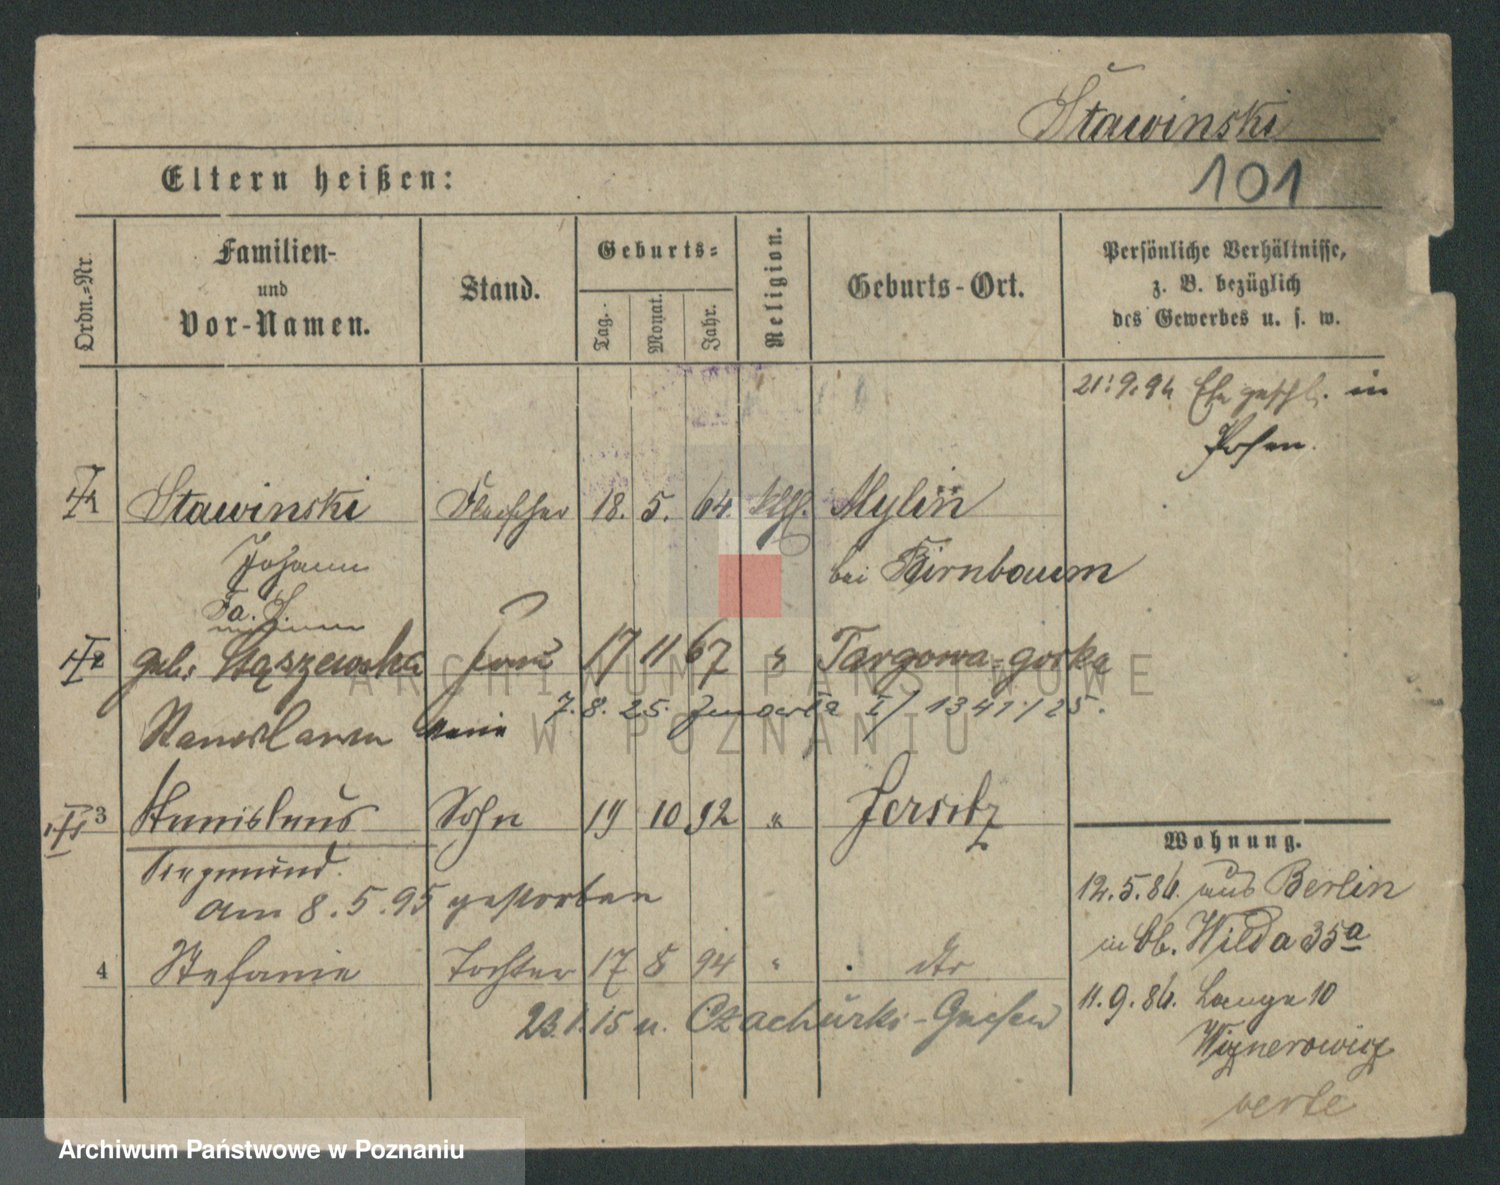 Stawinski
Eltern heißen:
101
Ordn.-Nr.
Familien-
und
Vor-Namen.
Stand.
Geburts-
Tag.
Monat.
Jahr.
Religion.
Geburts-Ort.
Persönliche Verhältnisse,
z. B. bezüglich
des Gewerbes u. s. w.
21.9.94 Ehe geschl. in
Posen.
Stawinski Fleischer 18. 5. 64. kth. Mylin
Johann bei Birnbaum
geb. Frau 17 11 67 " Targowa-gorka
7. 8. 25. I/1341/25.
3 Stanislaus Sohn 19 10 92 " Jersitz
Siegmund.
am 8.5.95 gestorben
4 Stefanie Tochter 17 8 94 " dto
23.1.15 n. Czachurki-Gnesen
Wohnung.
12.5.86. aus Berlin
in Ob. Wilda 35a
11.9.86. Lange 10
verte
ARCHIWUM PAŃSTWOWE
W POZNANIU
Archiwum Państwowe w Poznaniu